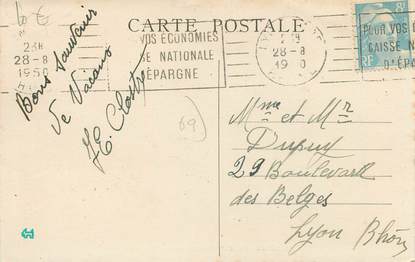 CARTE POSTALE
10 €
23H
28-8
1950
VOS ÉCONOMIES
SE NATIONALE
D'ÉPARGNE
28-8
19 0
POUR VOS É
CAISSE NA
D'ÉPA
8F
RF
Bons Souvenir
de Vacanc
69
Mme et Mr
Dupuy
29 Boulevard
des Belges
Lyon Rhône